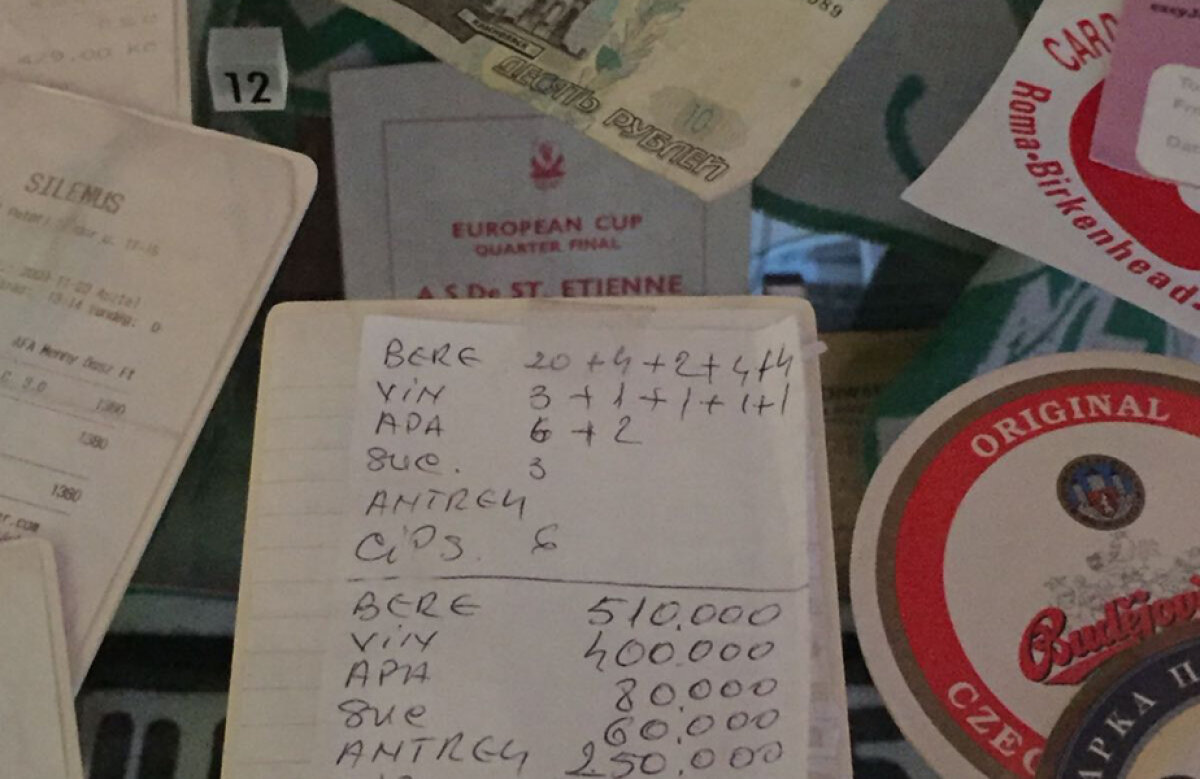 12
ДЕСЯТЬ РУБЛЕЙ
10
SILENUS
1380
1380
1380
EUROPEAN CUP
QUARTER FINAL
A.S De ST. ETIENNE
Roma-Birkenhead
BERE 20+4+2+4+4
VIN 3+1+1+1+1
APA 6+2
SUC. 3
ANTREU
CiPS. 6
BERE 510.000
VIN 400.000
APA 80.000
SUC 60.000
ANTREU 250.000
ORIGINAL
Budějov
CZEC
АРКА П